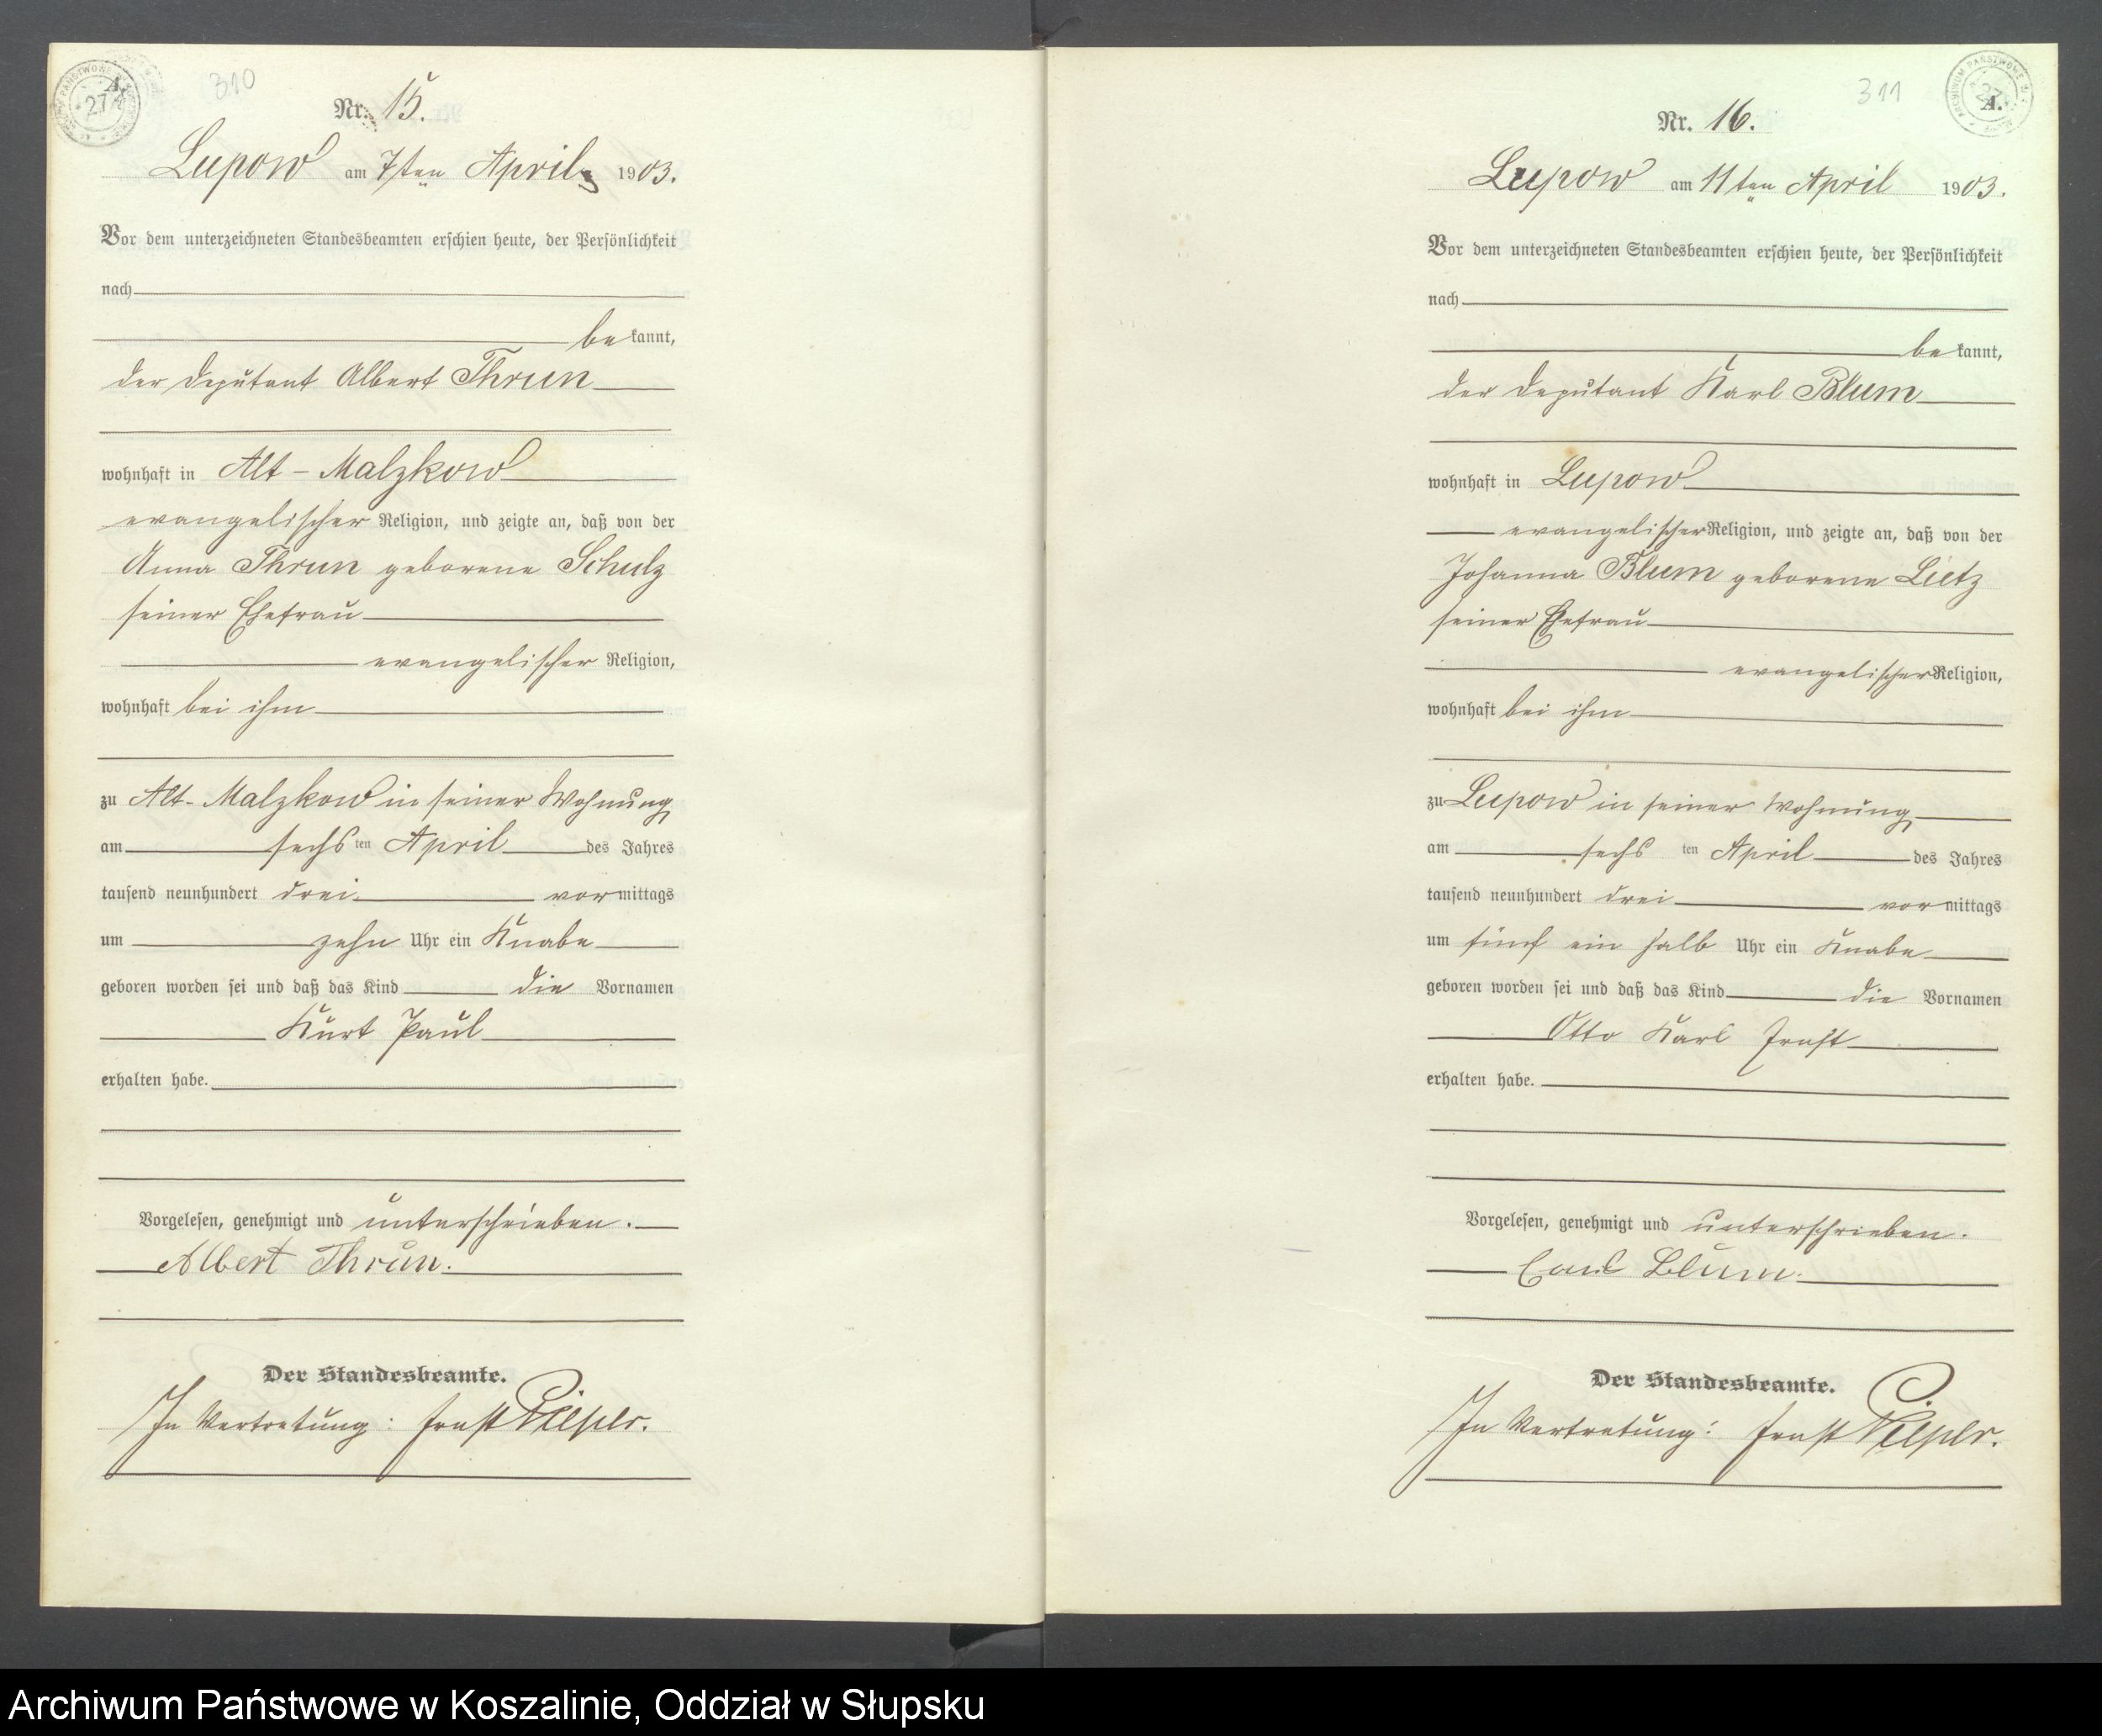 310
A.
27
Nr. 15.
Lupow am 7ten April 1903.
Vor dem unterzeichneten Standesbeamten erschien heute, der Persönlichkeit
nach
be kannt,
der Deputant Albert Thrun
wohnhaft in Alt-Malzkow
evangelischer Religion, und zeigte an, daß von der
Anna Thrun geborene Schulz
seiner Ehefrau
evangelischer Religion,
wohnhaft bei ihm
zu Alt-Malzkow in seiner Wohnung
am sechs ten April des Jahres
tausend neunhundert drei vormittags
um zehn Uhr ein Knabe
geboren worden sei und daß das Kind die Vornamen
Kurt Paul
erhalten habe.
Vorgelesen, genehmigt und unterschrieben.
Albert Thrun.
Der Standesbeamte.
In Vertretung: Ernst Pieper.
311
A.
Nr. 16.
Lupow am 11ten April 1903.
Vor dem unterzeichneten Standesbeamten erschien heute, der Persönlichkeit
nach
be kannt,
der Deputant Karl Blum
wohnhaft in Lupow
evangelischer Religion, und zeigte an, daß von der
Johanna Blum geborene Lietz
seiner Ehefrau
evangelischer Religion,
wohnhaft bei ihm
zu Lupow in seiner Wohnung
am sechs ten April des Jahres
tausend neunhundert drei vormittags
um fünf ein halb Uhr ein Knabe
geboren worden sei und daß das Kind die Vornamen
Otto Karl Ernst
erhalten habe.
Vorgelesen, genehmigt und unterschrieben.
Carl Blum.
Der Standesbeamte.
In Vertretung: Ernst Pieper.
Archiwum Państwowe w Koszalinie, Oddział w Słupsku